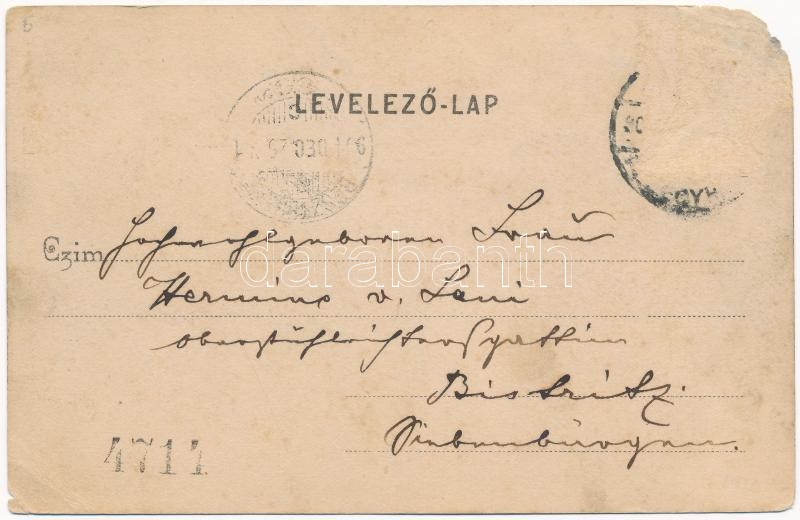 LEVELEZŐ-LAP
Czim Hochwohlgeboren Frau
Hermine v. Lani
Oberstuhlrichtersgattin
Bistritz.
Siebenbürgen.
4711
darabanth
5